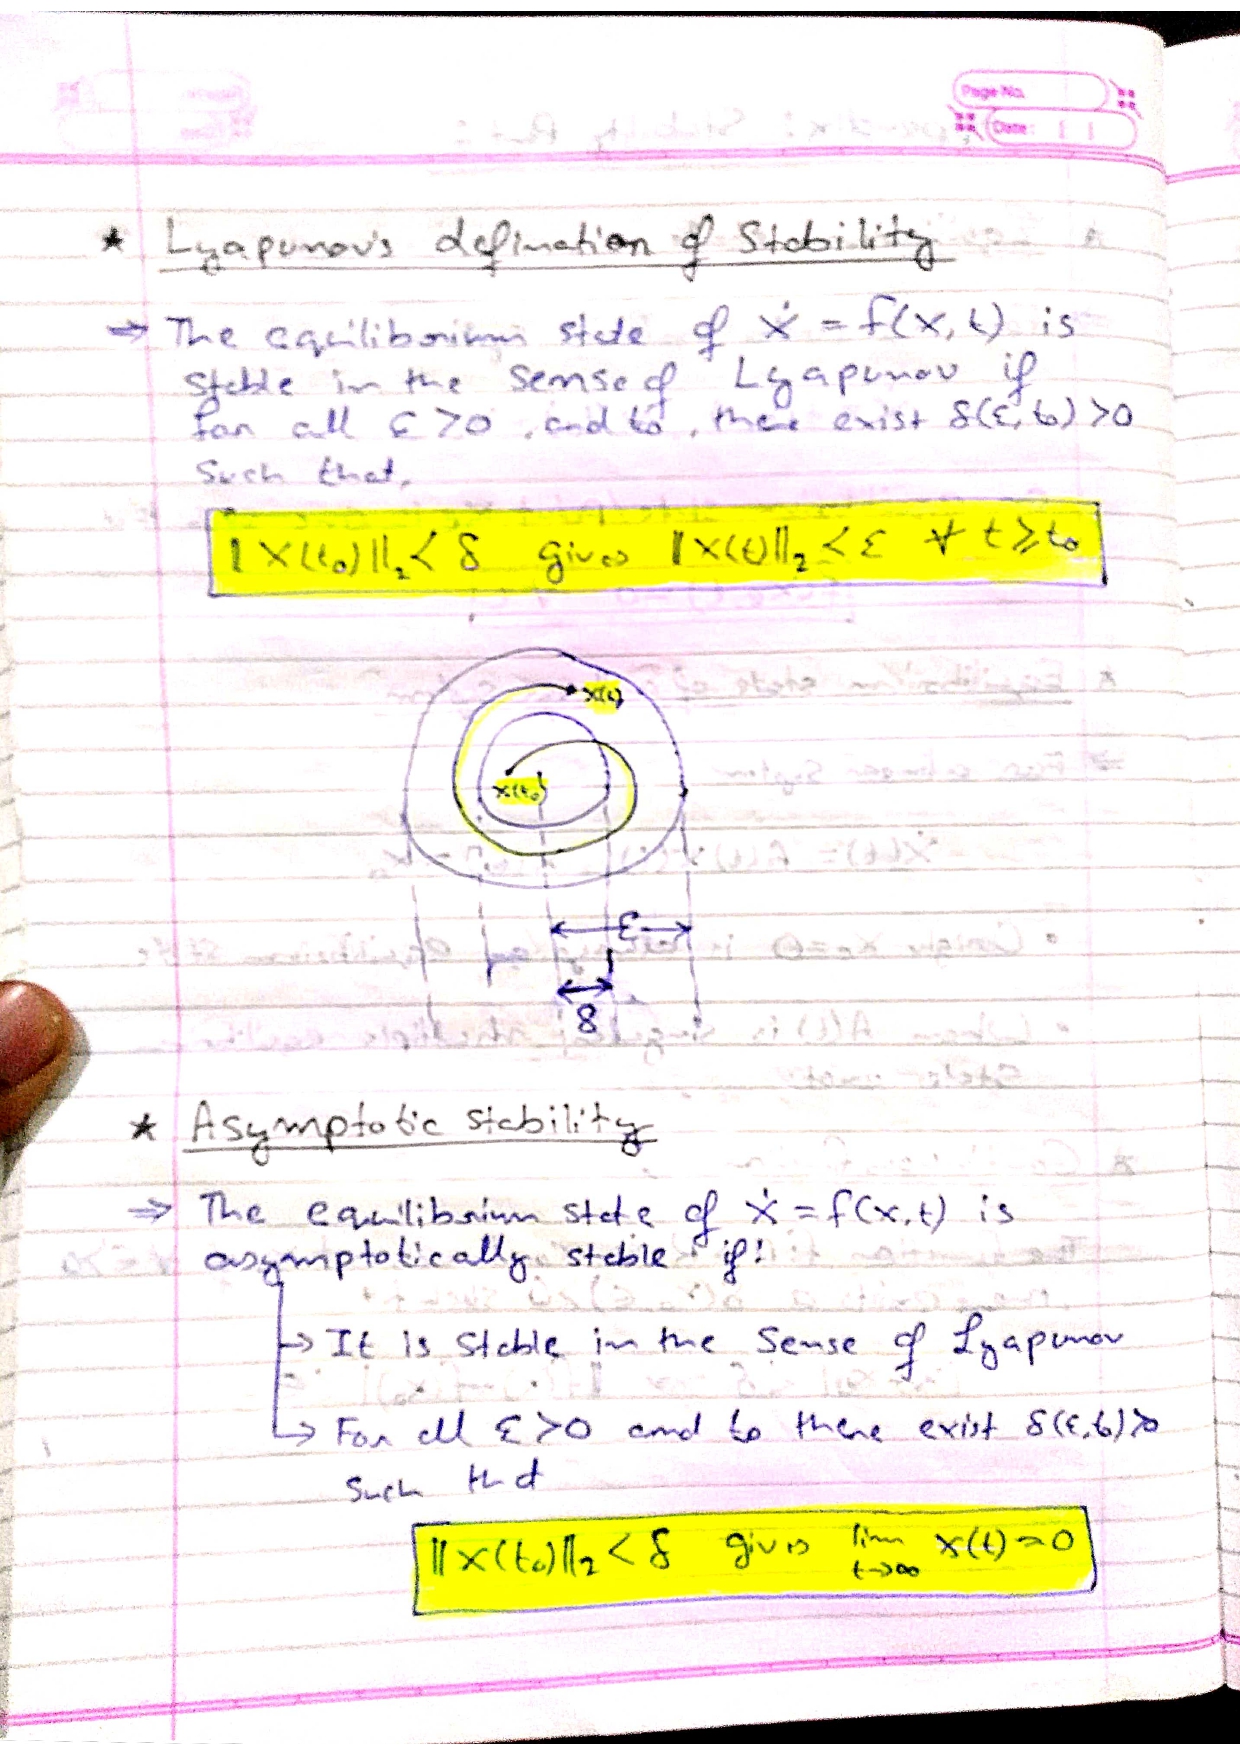 Page No.
Date:
★ Lyapunov's defination of Stability
⇒ The equilibrium state of ẋ = f(x, t) is
stable in the sense of Lyapunov if
for all ε > 0 , and t₀ , there exist δ(ε, t₀) > 0
Such that,
‖x(t₀)‖₂ < δ gives ‖x(t)‖₂ < ε ∀ t ≥ t₀
x(t)
x(t₀)
ε
δ
★ Asymptotic stability
⇒ The equilibrium state of ẋ = f(x, t) is
asymptotically stable if:
→ It is Stable in the Sense of Lyapunov
→ For all ε > 0 and t₀ there exist δ(ε, t₀) > 0
Such that
‖x(t₀)‖₂ < δ gives lim x(t) = 0
t→∞